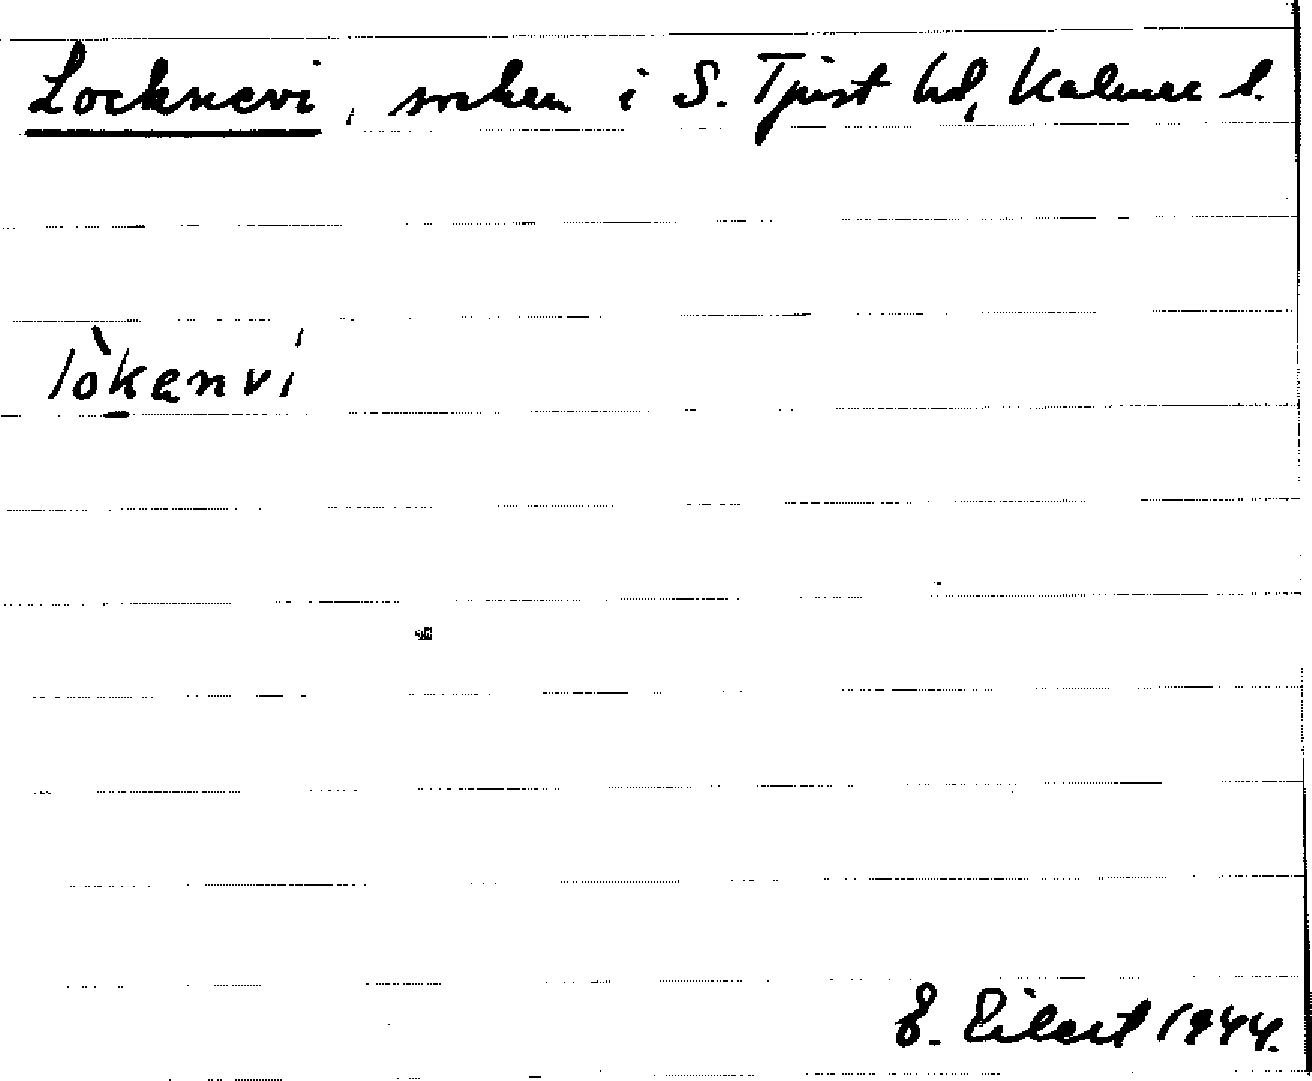 Locknevi, socken i S. Tjust hd, Kalmar l.
lòkanvi
E. Eilert 1944.